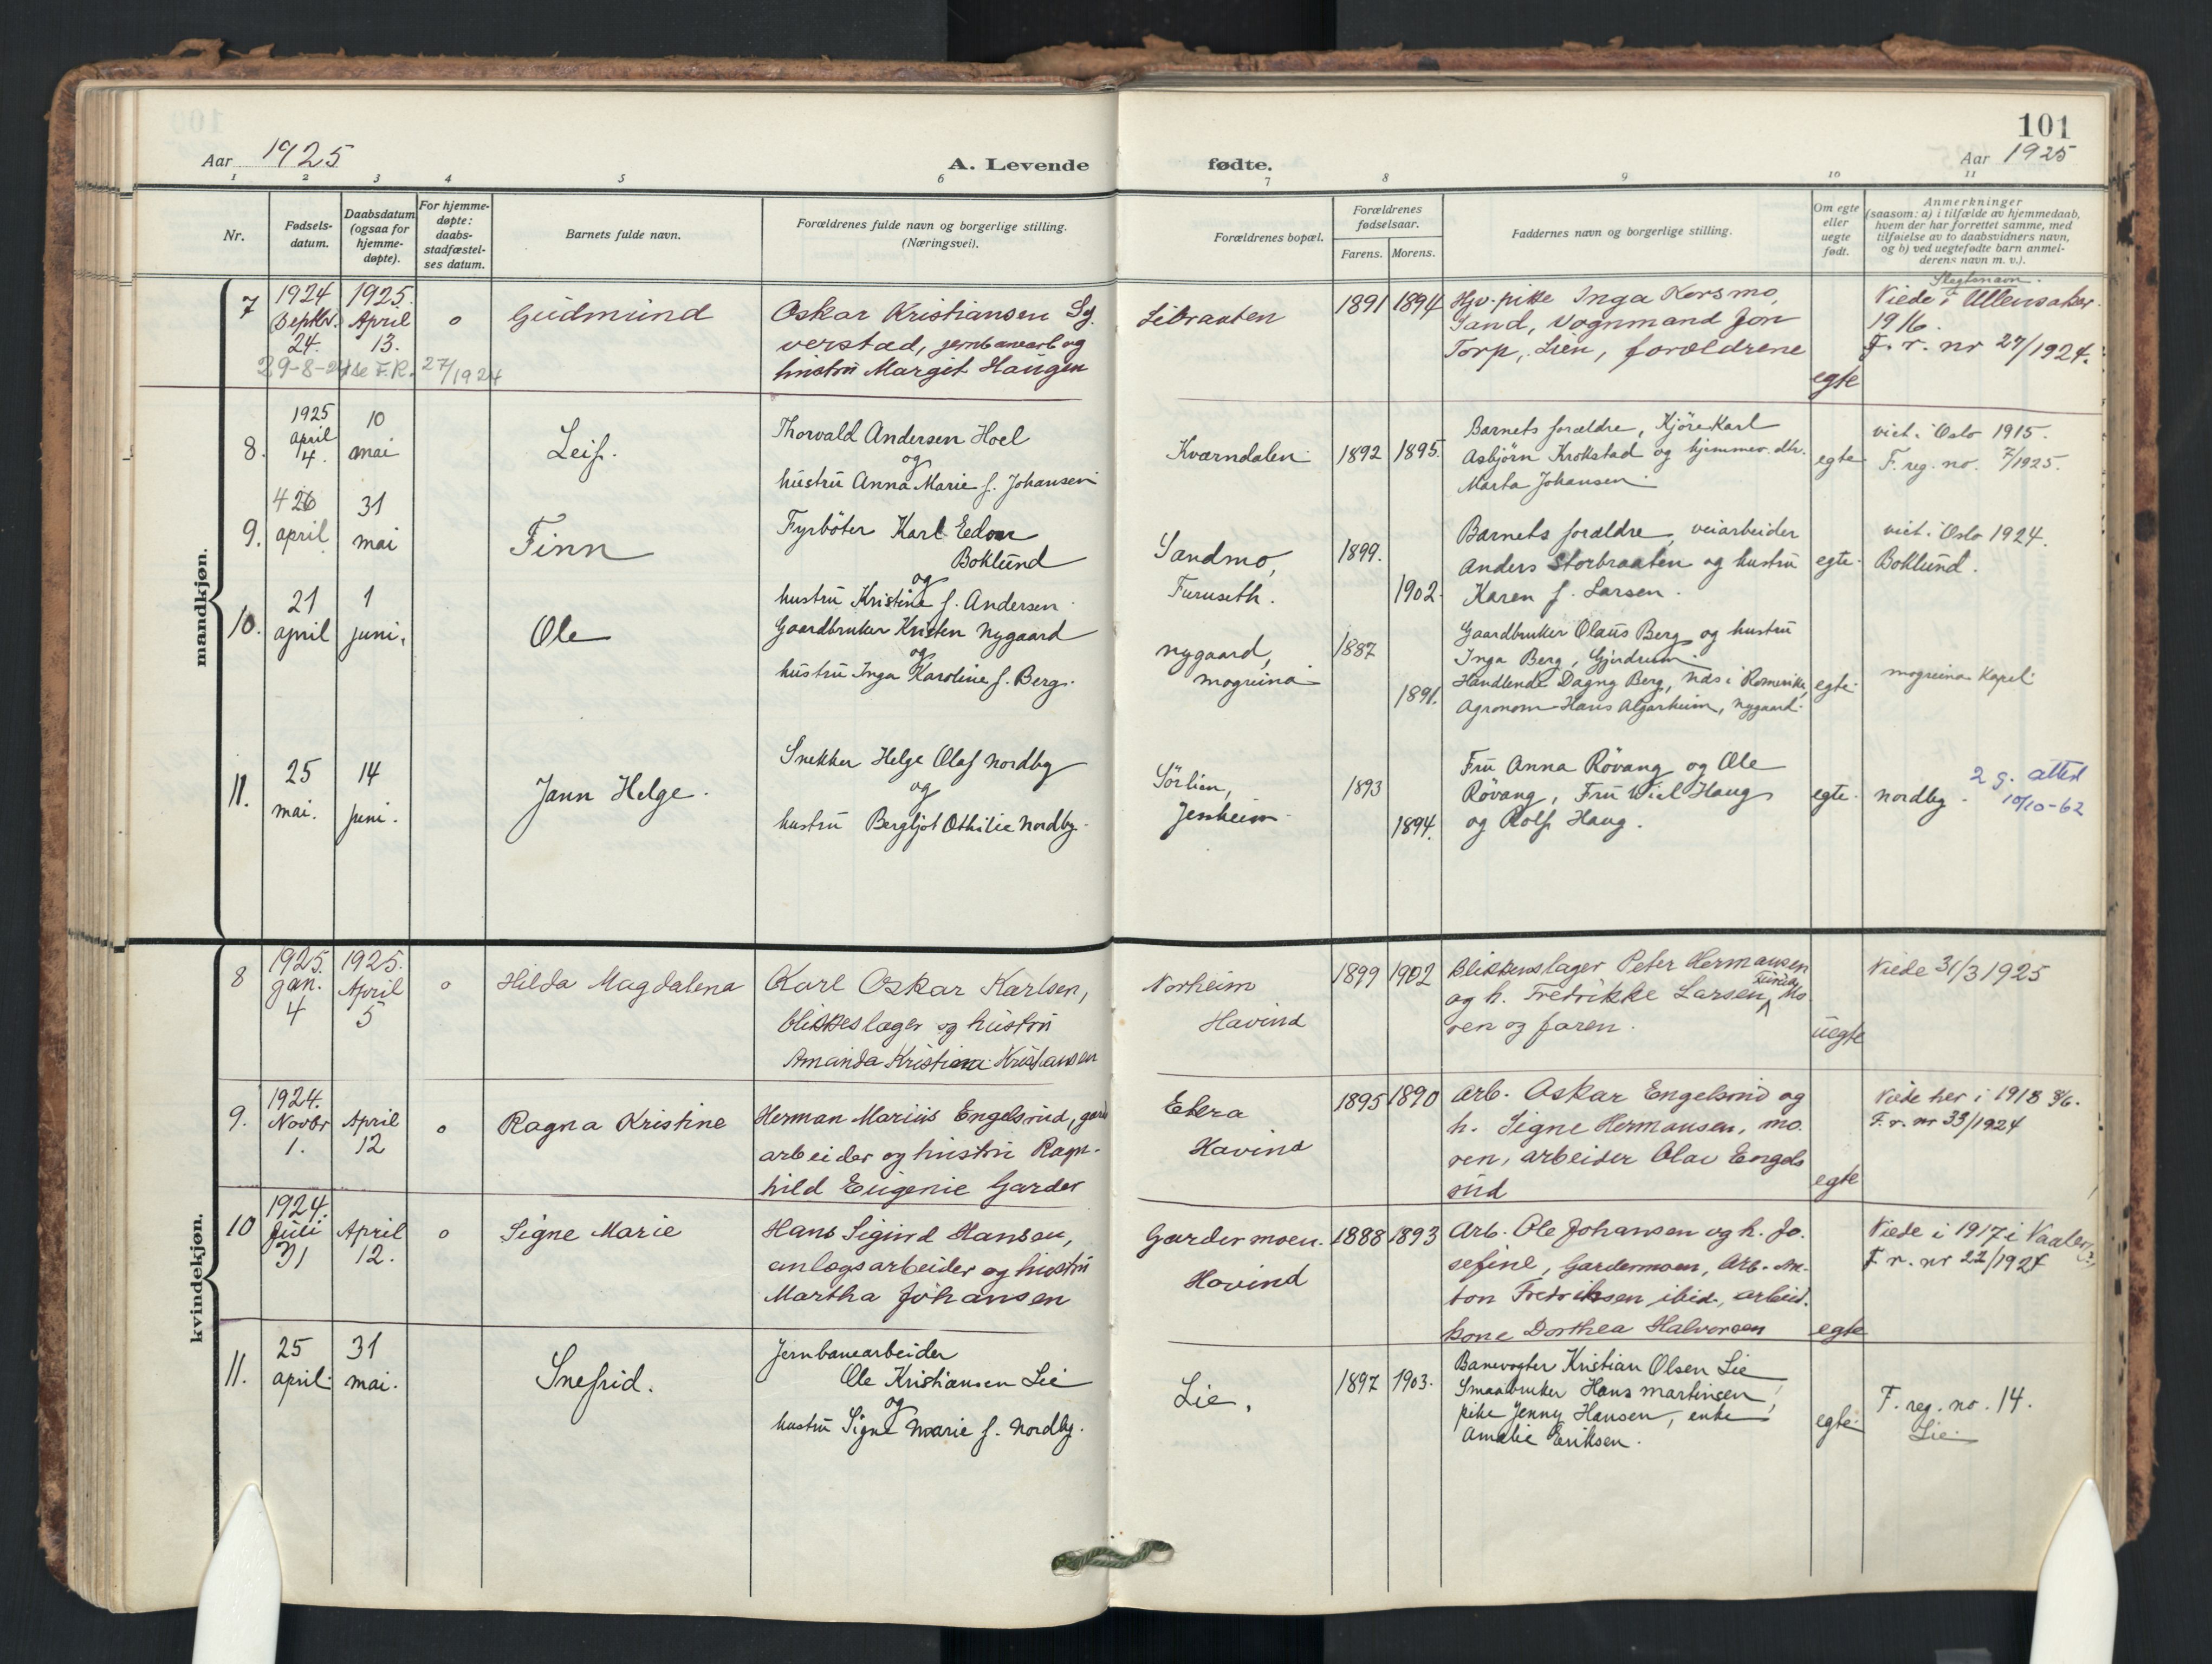 101
Aar 1925
A. Levende fødte.
Aar 1925
1 2 3 4 5 6 7 8 9 10 11
Nr.
Fødsels-
datum.
Daabsdatum
(ogsaa for
hjemme-
døpte).
For hjemme-
døpte:
daabs-
stadfæstel-
ses datum.
Barnets fulde navn.
Forældrenes fulde navn og borgerlige stilling.
(Næringsvei).
Forældrenes bopæl.
Forældrenes
fødselsaar.
Farens. Morens.
Faddernes navn og borgerlige stilling.
Om egte
eller
uegte
født.
Anmerkninger
(saasom: a) i tilfælde av hjemmedaab,
hvem der har forrettet samme, med
tilføielse av to daabsvidners navn,
og b) ved uegtefødte barn anmel-
derens navn m. v.).
Slegtsnavn.
mandkjøn.
7
1924
Septbr.
24.
29-8-24 se F.R. 27/1924
1925.
April
13.
o
Gudmund
Oskar Kristiansen Sy-
verstad, jernbanearb og
hustru Margit Haugen
Libraaten
1891
1894
Hjv. pike Inga Korsmo,
Sand, vognmand Jon
Torp, Lien, forældrene
egte
Viede i Ullensaker
1916.
F. r. nr 27/1924.
8.
1925
april
4.
10
mai
Leif.
Thorvald Andersen Hoel
og
hustru Anna Marie f. Johansen
Kværndalen
1892
1895.
Barnets forældre, Kjørekarl
Asbjørn Krokstad og hjemmev. dtr.
Marta Johansen.
egte
viet i Oslo 1915.
F. reg. no. 7/1925.
9.
april
31
mai
Finn
Fyrbøter Karl Edor
Boklund
og
hustru Kristine f. Andersen.
Sandmo,
Furuseth.
1899.
1902.
Barnets forældre, veiarbeider
Anders Storbraaten og hustru
Karen f. Larsen.
egte.
viet i Oslo 1924.
Boklund.
10.
21
april
1
juni.
Ole
Gaardbruker Kristen Nygaard
og
hustru Inga Karoline f. Berg.
Nygaard,
Mogreina
1887
1891.
Gaardbruker Olaus Berg og hustru
Inga Berg, Gjerdrum
Handlende Dagny Berg, Nds i Romerike,
Agronom Hans Algarheim, Nygaard.
egte.
Mogreina Kapel.
11.
25
mai.
14
juni.
Jann Helge.
Snekker Helge Olaf Nordby
og
hustru Bergljot Othilie Nordby.
Sörlien,
Jessheim
1893
1894.
Fru Anna Røvang og Ole
Røvang, Fru Wiel Haug
og Rolf Haug.
egte.
Nordby.
2 g. attest
10/10-62
kvindekjøn.
8
1925.
Jan.
4
1925.
April
5
o
Hilda Magdalena
Karl Oskar Karlsen,
blikkeslager og hustru
Amanda Kristina Kristiansen
Norheim
Hovind
1899
1902
Blikkenslager Peter Hermansen
og h. Fredrikke Larsen, mo-
ren og faren.
uegte
Viede 31/3 1925
9.
1924.
Novbr
1.
April
12
o
Ragna Kristine
Herman Marius Engelsrud, gards
arbeider og hustru Ragn-
hild Eugenie Garder
Hovind
1895
1890
Arb. Oskar Engelsrud og
h. Signe Hermansen, mo-
ren, arbeider Olav Engels
rud
egte
Viede her i 1918
F. r. nr 33/1924
10
1924.
Juli
31
April
12.
o
Signe Marie
Hans Sigurd Hansen,
anlægsarbeider og hustru
Martha Johansen
Gardermoen.
Hovind
1888
1893
Arb. Ole Johansen og h. Jo-
sefine, Gardermoen, Arb. An-
ton Fredriksen ibid, arbeid.
kone Dorthea Halvorsen
egte
Viede i 1917 i Vaaler (?)
F r. nr 22/1924
11.
25
april.
31
mai.
Snefrid.
Jernbanearbeider
Ole Kristiansen Lie
og
hustru Signe Marie f. Nordby.
Lie.
1897
1903.
Banevogter Kristian Olsen Lie
Smaabruker Hans Martinsen,
pike Jenny Hansen, enke
Amalie Eriksen.
egte.
F. reg. no. 14.
Lie